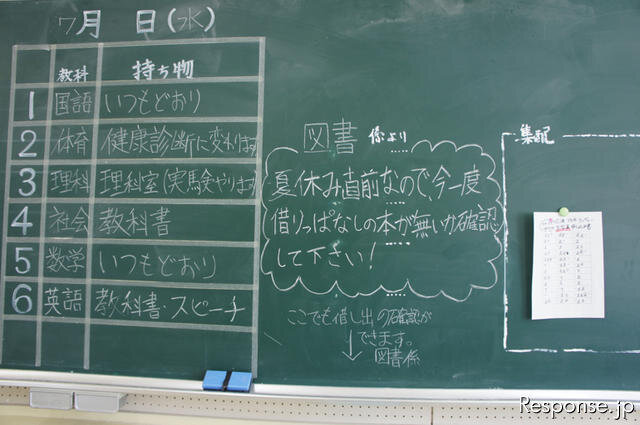 7月 日(水)
教科 持ち物
1 国語 いつもどおり
2 体育 健康診断に変わります
3 理科 理科室(実験やります)
4 社会 教科書
5 数学 いつもどおり
6 英語 教科書・スピーチ
図書 係より
夏休み直前なので、今一度
借りっぱなしの本が無いか確認
して下さい!
ここでも借し出の確認が
できます。
図書係
集配
Response.jp